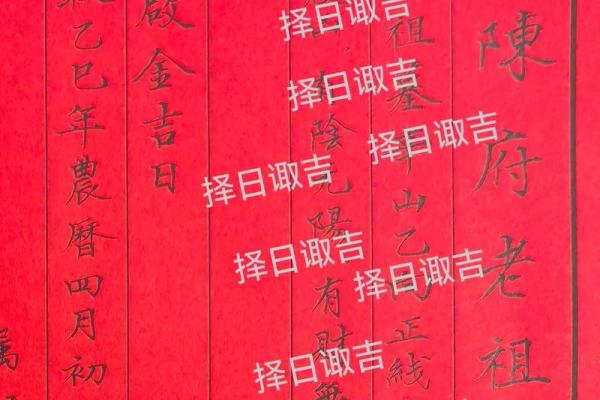 陳府老祖
祖墓山乙正綫
有陰陽有財
啟金吉日
乙巳年農曆四月初
择日诹吉
择日诹吉
择日诹吉
择日诹吉
择日诹吉
择日诹吉
择日诹吉